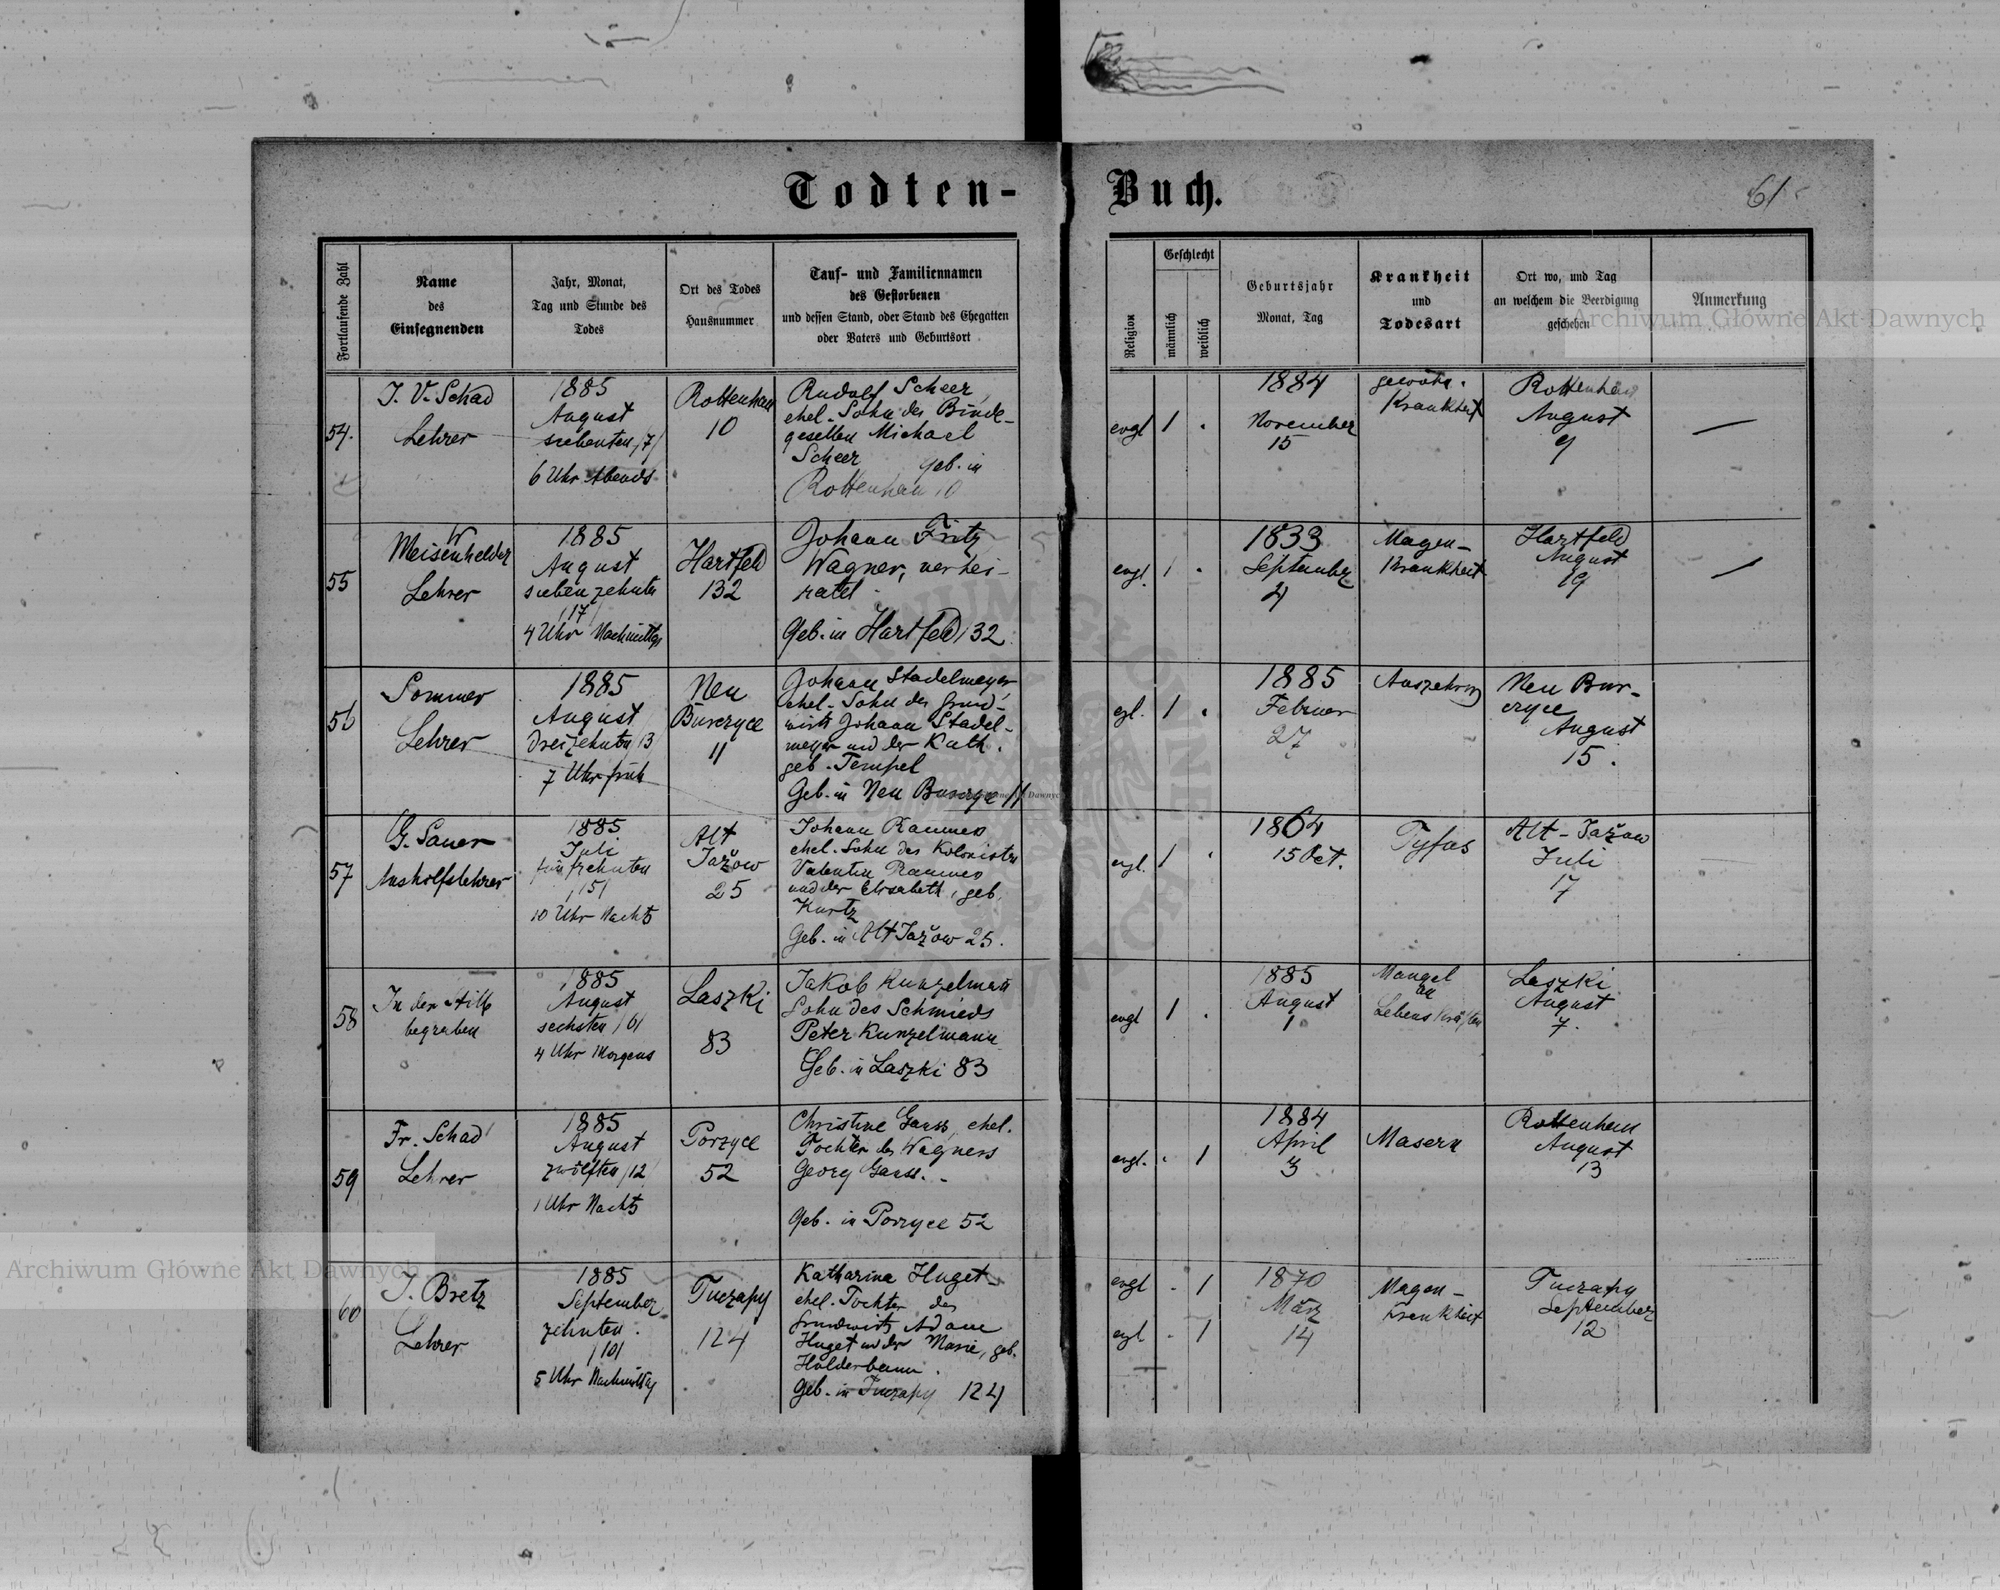 Todten-Buch.
61
Fortlaufende Zahl
Name
des
Einsegnenden
Jahr, Monat,
Tag und Stunde des
Todes
Ort des Todes
Hausnummer
Tauf- und Familiennamen
des Gestorbenen
und dessen Stand, oder Stand des Ehegatten
oder Vaters und Geburtsort
Religion
Geschlecht
männlich
weiblich
Geburtsjahr
Monat, Tag
Krankheit
und
Todesart
Ort wo, und Tag
an welchem die Beerdigung
geschehen
Anmerkung
54.
J. V. Schad
Lehrer
1885
August
siebenten /7/
6 Uhr Abends
Rottenhan
10
Rudolf Scheer,
ehel. Sohn des Binde-
gesellen Michael
Scheer geb. in
Rottenhan 10
evgl
1 .
1884
November
15
gewöhn.
Krankheit
Rottenhan
August
9
—
55
W
Meisenhelder
Lehrer
1885
August
siebenzehnten
/17/
4 Uhr Nachmittgs
Hartfeld
132
Johann Fritz
Wagner, verhei-
ratet
Geb. in Hartfeld 132
evgl.
1 .
1833
September
4
Magen-
Krankheit
Hartfeld
August
19
—
56
Sommer
Lehrer
1885
August
dreizehnten /13
7 Uhr früh
Neu
Burczyce
11
Johann Stadelmeyer,
ehel. Sohn des Grund-
wirts Johann Stadel-
meyer und der Kath.
geb. Tempel
Geb. in Neu Burczyce 11
egl.
1 .
1885
Februar
27
Auszehrung
Neu Bur-
czyce
August
15.
57
G. Sauer
Aushilfslehrer
1885
Juli
fünfzehnten
/15/
10 Uhr Nachts
Alt
Jažow
25
Johann Raumes
ehel. Sohn des Kolonisten
Valentin Raumes
und der Elisabeth, geb.
Kurtz
Geb. in Alt Jažow 25.
evgl.
1 .
1864
15 Oct.
Tyfus
Alt-Jažow
Juli
17
58
In der Stille
begraben
1885
August
sechsten /6/
4 Uhr Morgens
Laszki
83
Jakob Kunzelmann
Sohn des Schmieds
Peter Kunzelmann
Geb. in Laszki 83
evgl
1 .
1885
August
1
Mangel
an
Lebenskräften
Laszki
August
7.
59
Fr. Schad
Lehrer
1885
August
zwölften /12
1 Uhr Nachts
Porzyce
52
Christine Gauss, ehel.
Tochter des Wagners
Georg Gauss.
Geb. in Porzyce 52
evgl.
. 1
1884
April
3
Masern
Rottenhan
August
13
60
J. Bretz
Lehrer
1885
September
zehnten.
/10/
5 Uhr Nachmittag
Tuczapy
124
Katharina Huget
ehel. Tochter des
Grundwirts Adam
Huget und der Marie, geb.
Halderbaum.
Geb. in Tuczapy 124
evgl . 1
egl . 1
1870
März
14
Magen-
krankheit
Tuczapy
September
12
Archiwum Główne Akt Dawnych
Archiwum Główne Akt Dawnych